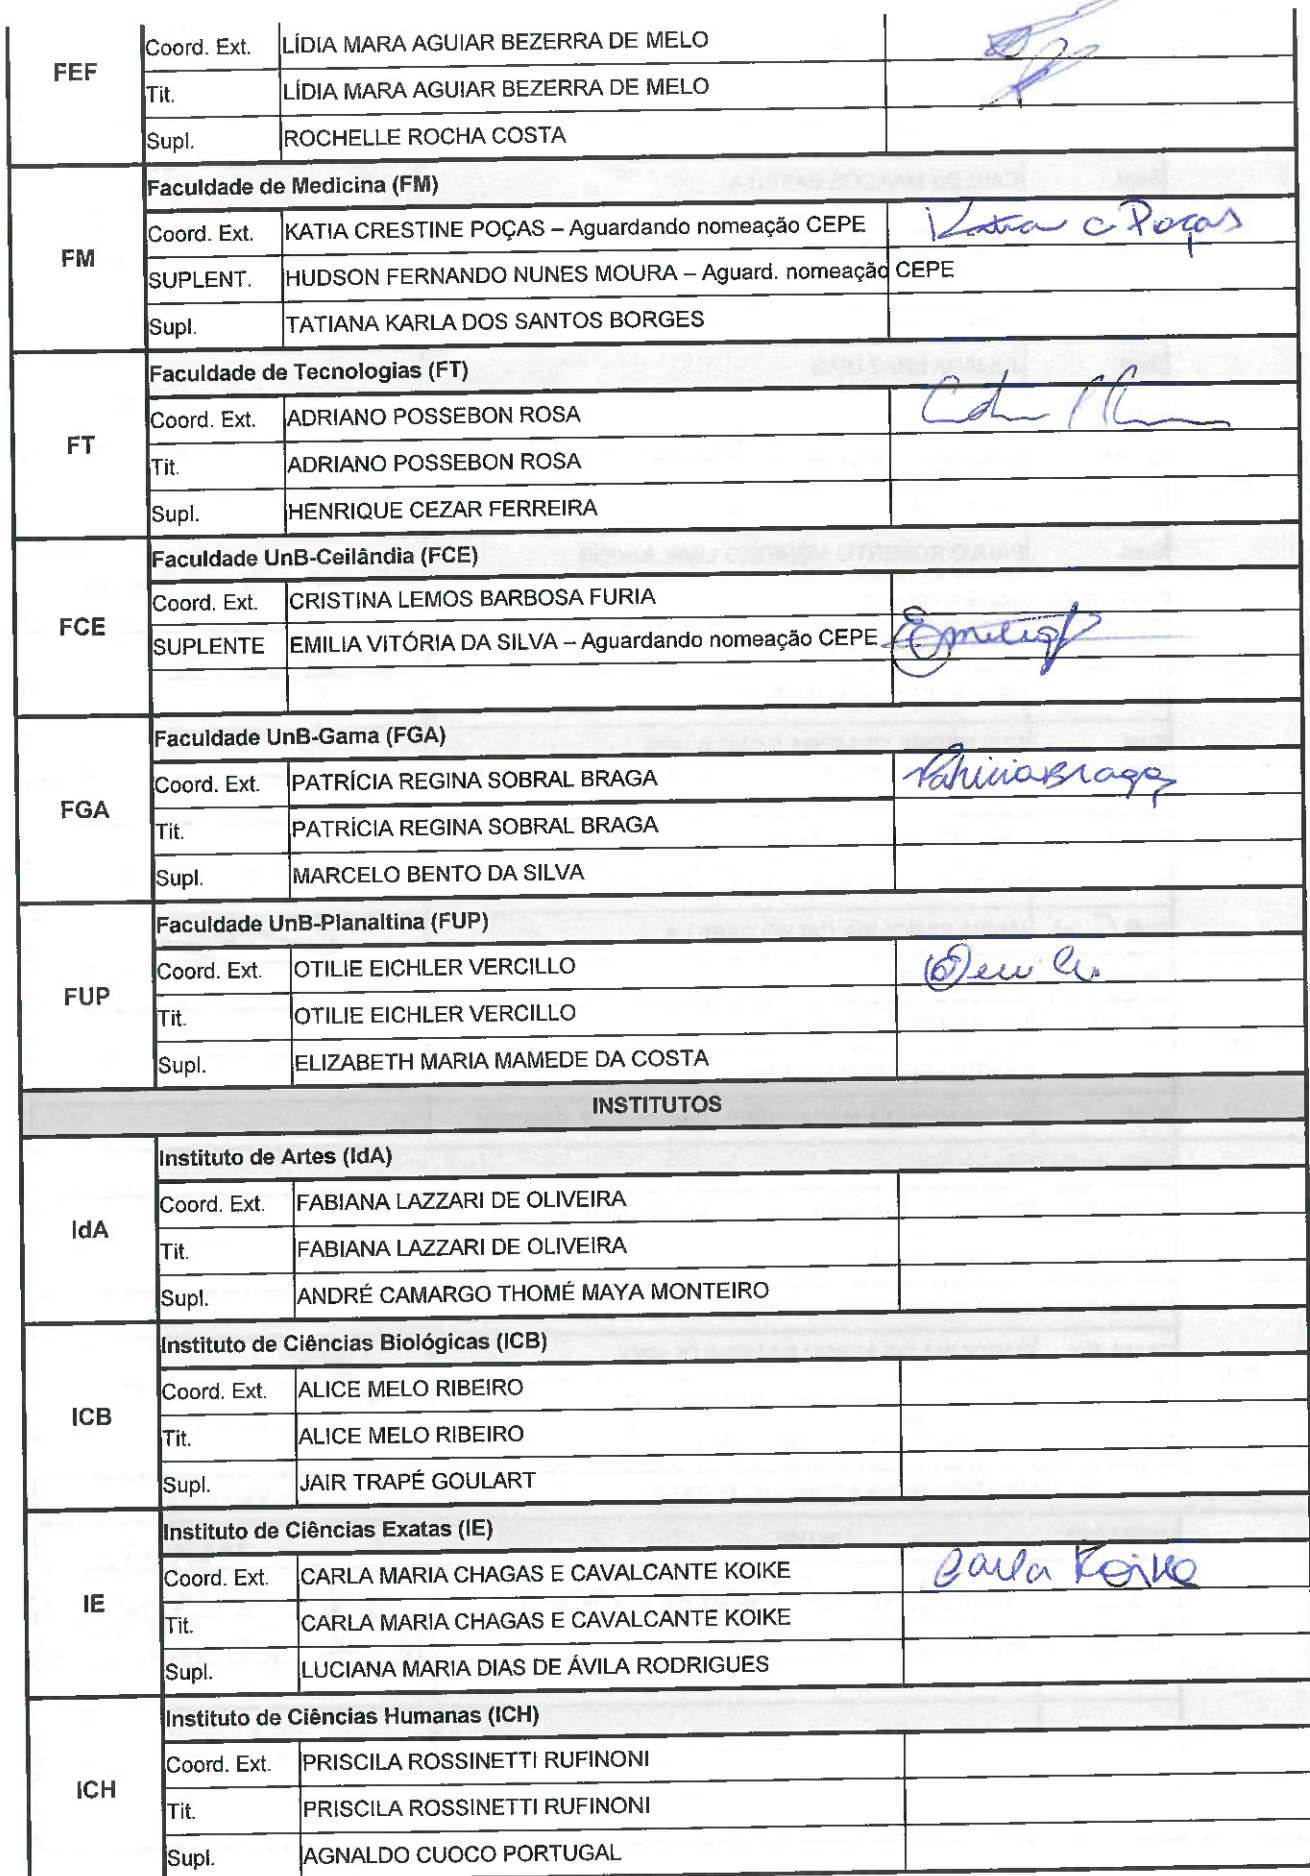 FEF
Coord. Ext. LÍDIA MARA AGUIAR BEZERRA DE MELO
Tit. LÍDIA MARA AGUIAR BEZERRA DE MELO
Supl. ROCHELLE ROCHA COSTA
FM
Faculdade de Medicina (FM)
Coord. Ext. KATIA CRESTINE POÇAS – Aguardando nomeação CEPE Katia C Poças
SUPLENT. HUDSON FERNANDO NUNES MOURA – Aguard. nomeação CEPE
Supl. TATIANA KARLA DOS SANTOS BORGES
FT
Faculdade de Tecnologias (FT)
Coord. Ext. ADRIANO POSSEBON ROSA
Tit. ADRIANO POSSEBON ROSA
Supl. HENRIQUE CEZAR FERREIRA
FCE
Faculdade UnB-Ceilândia (FCE)
Coord. Ext. CRISTINA LEMOS BARBOSA FURIA
SUPLENTE EMILIA VITÓRIA DA SILVA – Aguardando nomeação CEPE
FGA
Faculdade UnB-Gama (FGA)
Coord. Ext. PATRÍCIA REGINA SOBRAL BRAGA Patricia Braga
Tit. PATRÍCIA REGINA SOBRAL BRAGA
Supl. MARCELO BENTO DA SILVA
FUP
Faculdade UnB-Planaltina (FUP)
Coord. Ext. OTILIE EICHLER VERCILLO
Tit. OTILIE EICHLER VERCILLO
Supl. ELIZABETH MARIA MAMEDE DA COSTA
INSTITUTOS
IdA
Instituto de Artes (IdA)
Coord. Ext. FABIANA LAZZARI DE OLIVEIRA
Tit. FABIANA LAZZARI DE OLIVEIRA
Supl. ANDRÉ CAMARGO THOMÉ MAYA MONTEIRO
ICB
Instituto de Ciências Biológicas (ICB)
Coord. Ext. ALICE MELO RIBEIRO
Tit. ALICE MELO RIBEIRO
Supl. JAIR TRAPÉ GOULART
IE
Instituto de Ciências Exatas (IE)
Coord. Ext. CARLA MARIA CHAGAS E CAVALCANTE KOIKE Carla Koike
Tit. CARLA MARIA CHAGAS E CAVALCANTE KOIKE
Supl. LUCIANA MARIA DIAS DE ÁVILA RODRIGUES
ICH
Instituto de Ciências Humanas (ICH)
Coord. Ext. PRISCILA ROSSINETTI RUFINONI
Tit. PRISCILA ROSSINETTI RUFINONI
Supl. AGNALDO CUOCO PORTUGAL